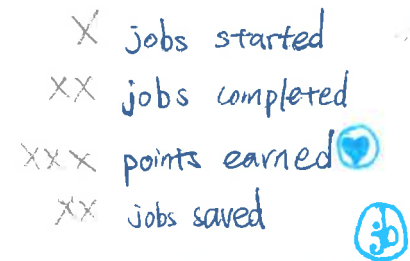 X jobs started
XX jobs completed
XXX points earned
XX jobs saved
jb